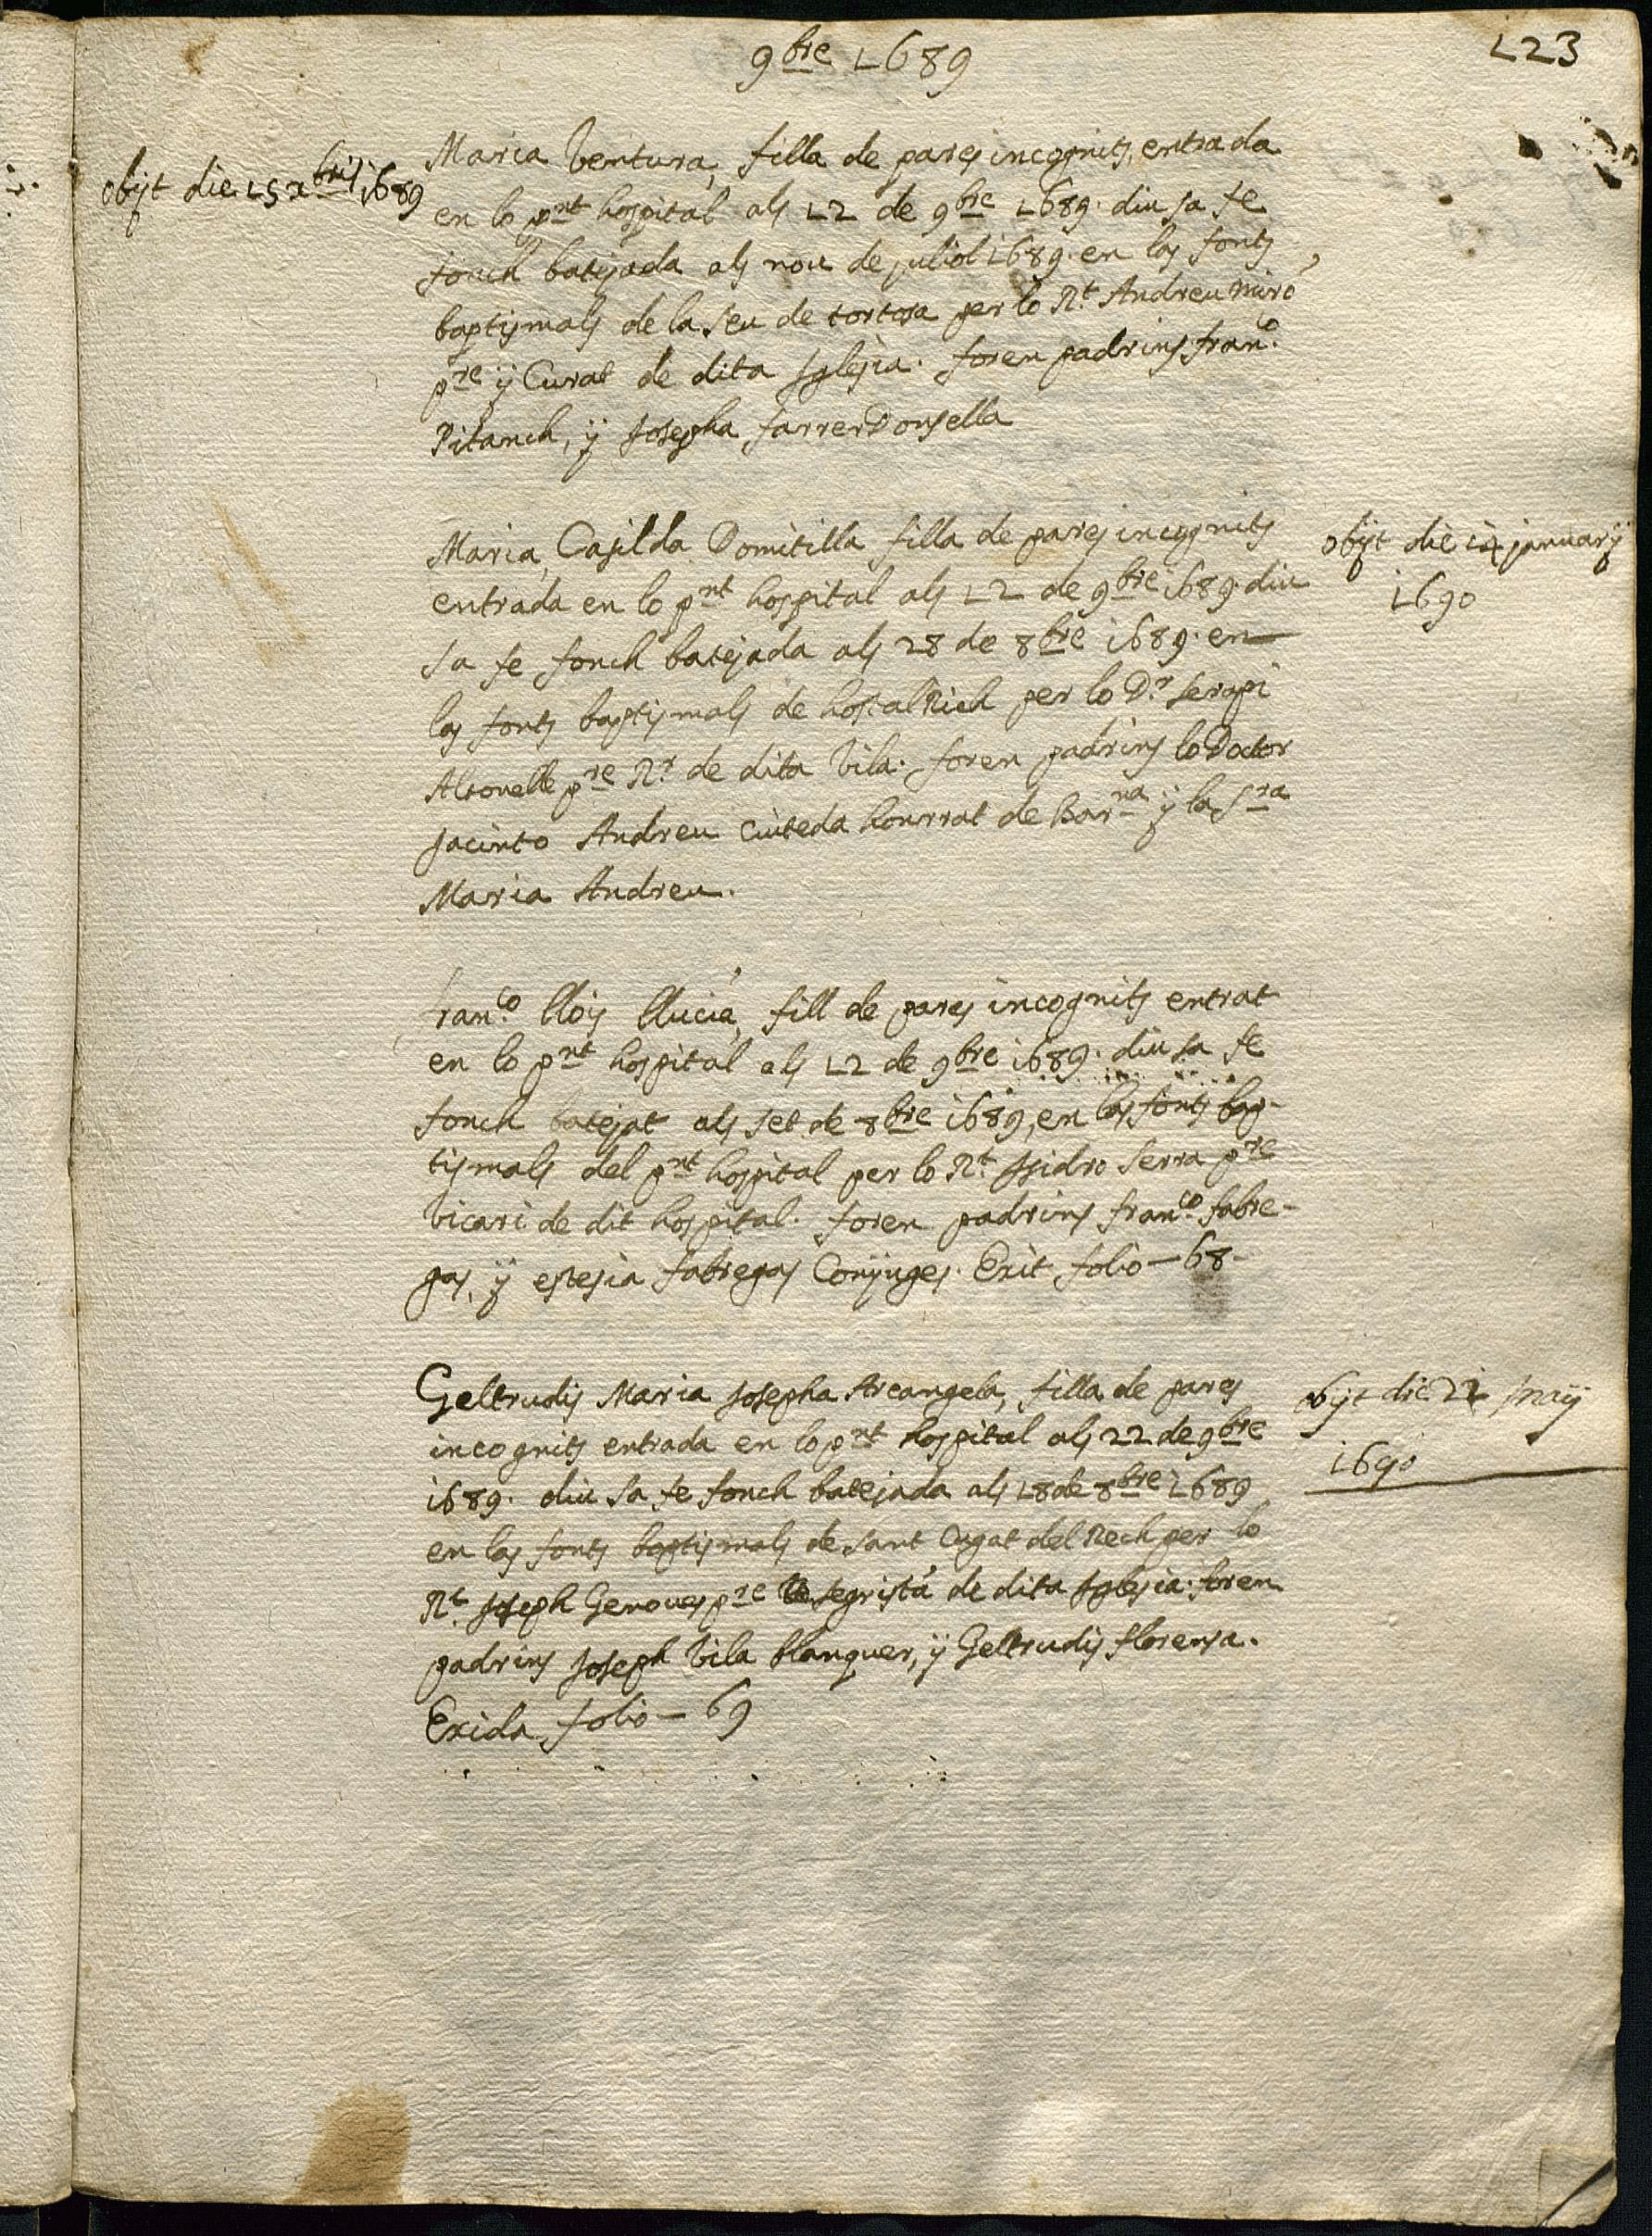 9bre 1689
123
obijt die 15 xbris 1689
Maria Ventura, filla de pares incognits, entrada
en lo pnt hospital als 12 de 9bre 1689. diu sa fe
fonch batejada als nou de juliol 1689. en las fonts
baptismals de la seu de tortosa per lo Rt. Andreu Miró
pre ÿ Curat de dita Iglesia. foren padrins franco.
Pitarch, ÿ Josepha farrer Donsella
Maria, Casilda Domitilla filla de pares incognits
entrada en lo pnt hospital als 12 de 9bre 1689. diu
sa fe fonch batejada als 28 de 8bre 1689. en
las fonts baptismals de hostalRich per lo Dr. Serapi
pre Rr. de dita Vila. foren padrins lo Doctor
Jacinto Andreu Ciuteda honrrat de Barna ÿ la Sra
Maria Andreu.
obijt die januarÿ
1690
franco. llois llucia, fill de pares incognits entrat
en lo pnt hospital als 12 de 9bre 1689. diu sa fe
fonch batejat als set de 8bre 1689, en las fonts bap-
tismals del pnt hospital per lo Rt. Isidro Serra pre
Vicari de dit hospital. foren padrins franco. fabre-
gas, ÿ estasia fabregas Conjuges. Exit folio - 68 -
Geltrudis Maria Josepha Arcangela, filla de pares
incognits entrada en lo pnt hospital als 22 de 9bre
1689. diu sa fe fonch batejada als 18 de 8bre 1689
en las fonts baptismals de sant Cugat del Rech per lo
Rt. Joseph Genoves pre segristá de dita Iglesia. foren
padrins Joseph Vila blanquer, ÿ Geltrudis florensa.
Exida folio - 69
obijt die 22 maÿ
1690